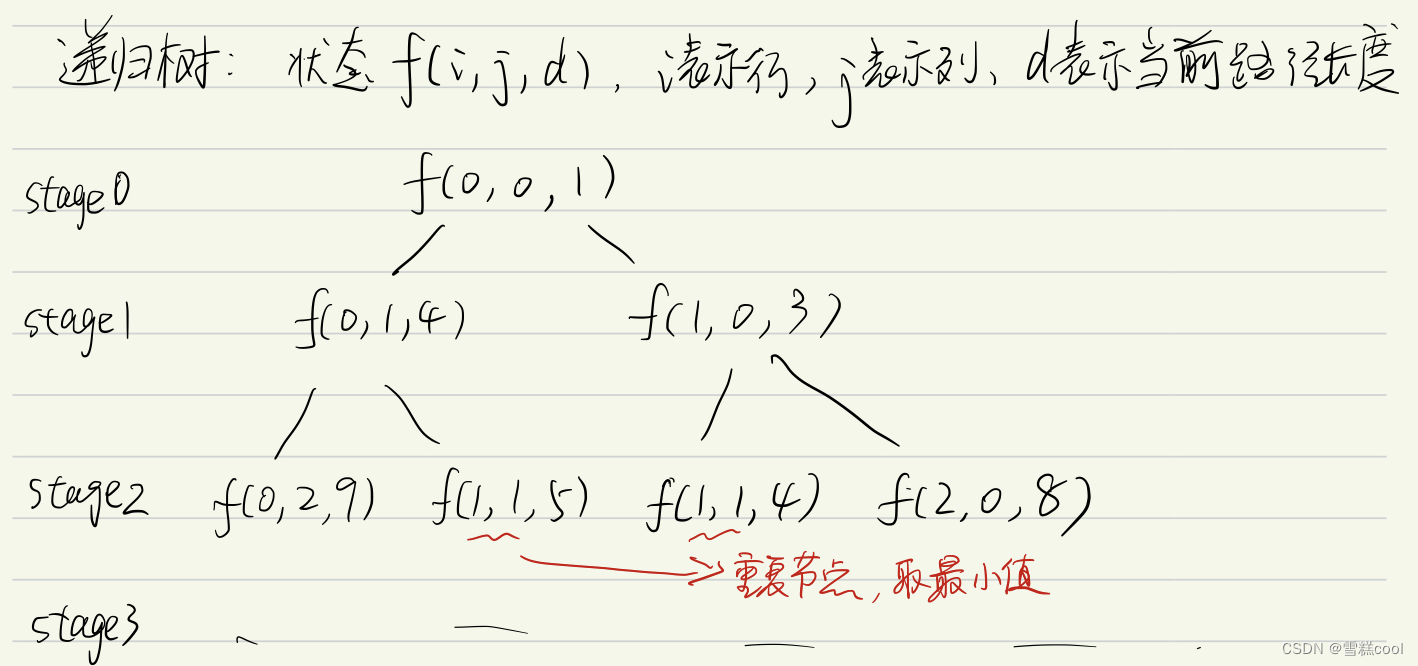 递归树: 状态 f(i,j,d), i表示行, j表示列、d表示当前路径长度
stage0 f(0,0,1)
stage1 f(0,1,4) f(1,0,3)
stage2 f(0,2,9) f(1,1,5) f(1,1,4) f(2,0,8)
重复节点,取最小值
stage3
CSDN @雪糕cool